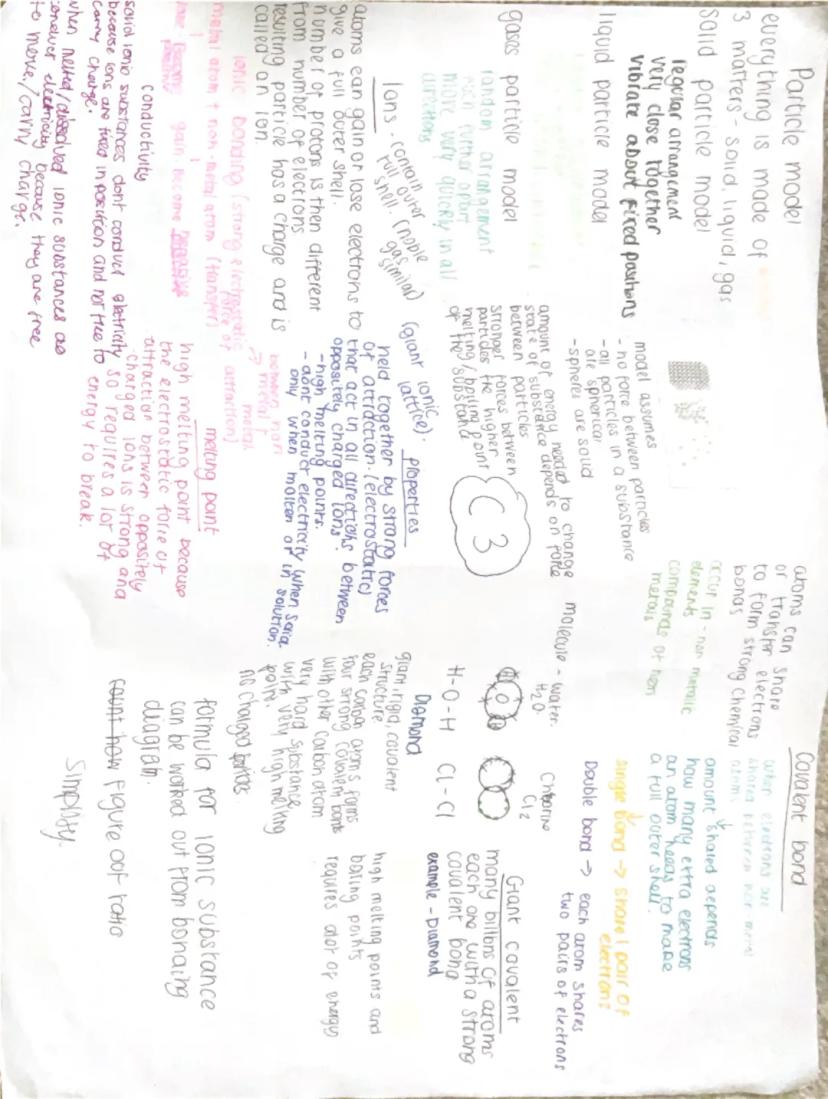 Particle model
everything is made of
3 matters - solid, liquid, gas
solid particle model
regular arrangement
very close together
vibrate about fixed positions
liquid particle model
gases particle model
random arrangement
much further apart
move very quickly in all
directions
model assumes
- no force between particles
- all particles in a substance
are spherical
- spheres are solid
amount of energy needed to change
state of substance depends on force
between particles
stronger forces between
particles the higher
melting/boiling point
of the substance
C3
Ions - contain outer
full shell. (noble
gas similar)
atoms can gain or lose electrons to
give a full outer shell.
number of protons is then different
from number of electrons
resulting particle has a charge and is
called an ion.
(giant ionic
lattice).
Properties
held together by strong forces
of attraction. (electrostatic)
that act in all directions between
oppositely charged ions.
- high melting points.
- dont conduct electricity when solid
only when molten or in
solution.
ionic bonding (strong electrostatic
force of attraction)
between non
metal
→ metal +
metal atom + non-metal atom (transfer)
gain. Become
conductivity
solid ionic substances dont conduct electricity
because ions are fixed in position and not free to
carry charge.
when melted/dissolved ionic substances do
electricity because they are free
to move/carry charge.
melting point
high melting point because
the electrostatic force of
attraction between oppositely
charged ions is strong and
so requires a lot of
energy to break.
Covalent bond
atoms can share
or transfer electrons
to form strong chemical
bonds
when electrons are
shared between non-metal
atoms
occur in - non metallic
elements
compounds of non
metals
amount shared depends
how many extra electrons
an atom needs to make
a full outer shell.
single bond → share 1 pair of
electrons
Double bond → each atom shares
two pairs of electrons
molecule - water.
H₂O.
Chlorine
Cl₂
O
H-O-H
Cl-Cl
Giant covalent
many billions of atoms
each one with a strong
covalent bond
example - Diamond
Diamond
giant, rigid covalent
structure
each carbon atoms forms
four strong covalent bonds
with other carbon atom
very hard substance
with very high melting
point.
no charged
high melting points and
boiling points
requires alot of energy
formula for ionic substance
can be worked out from bonding
diagram.
count how figure out ratio
simplify.